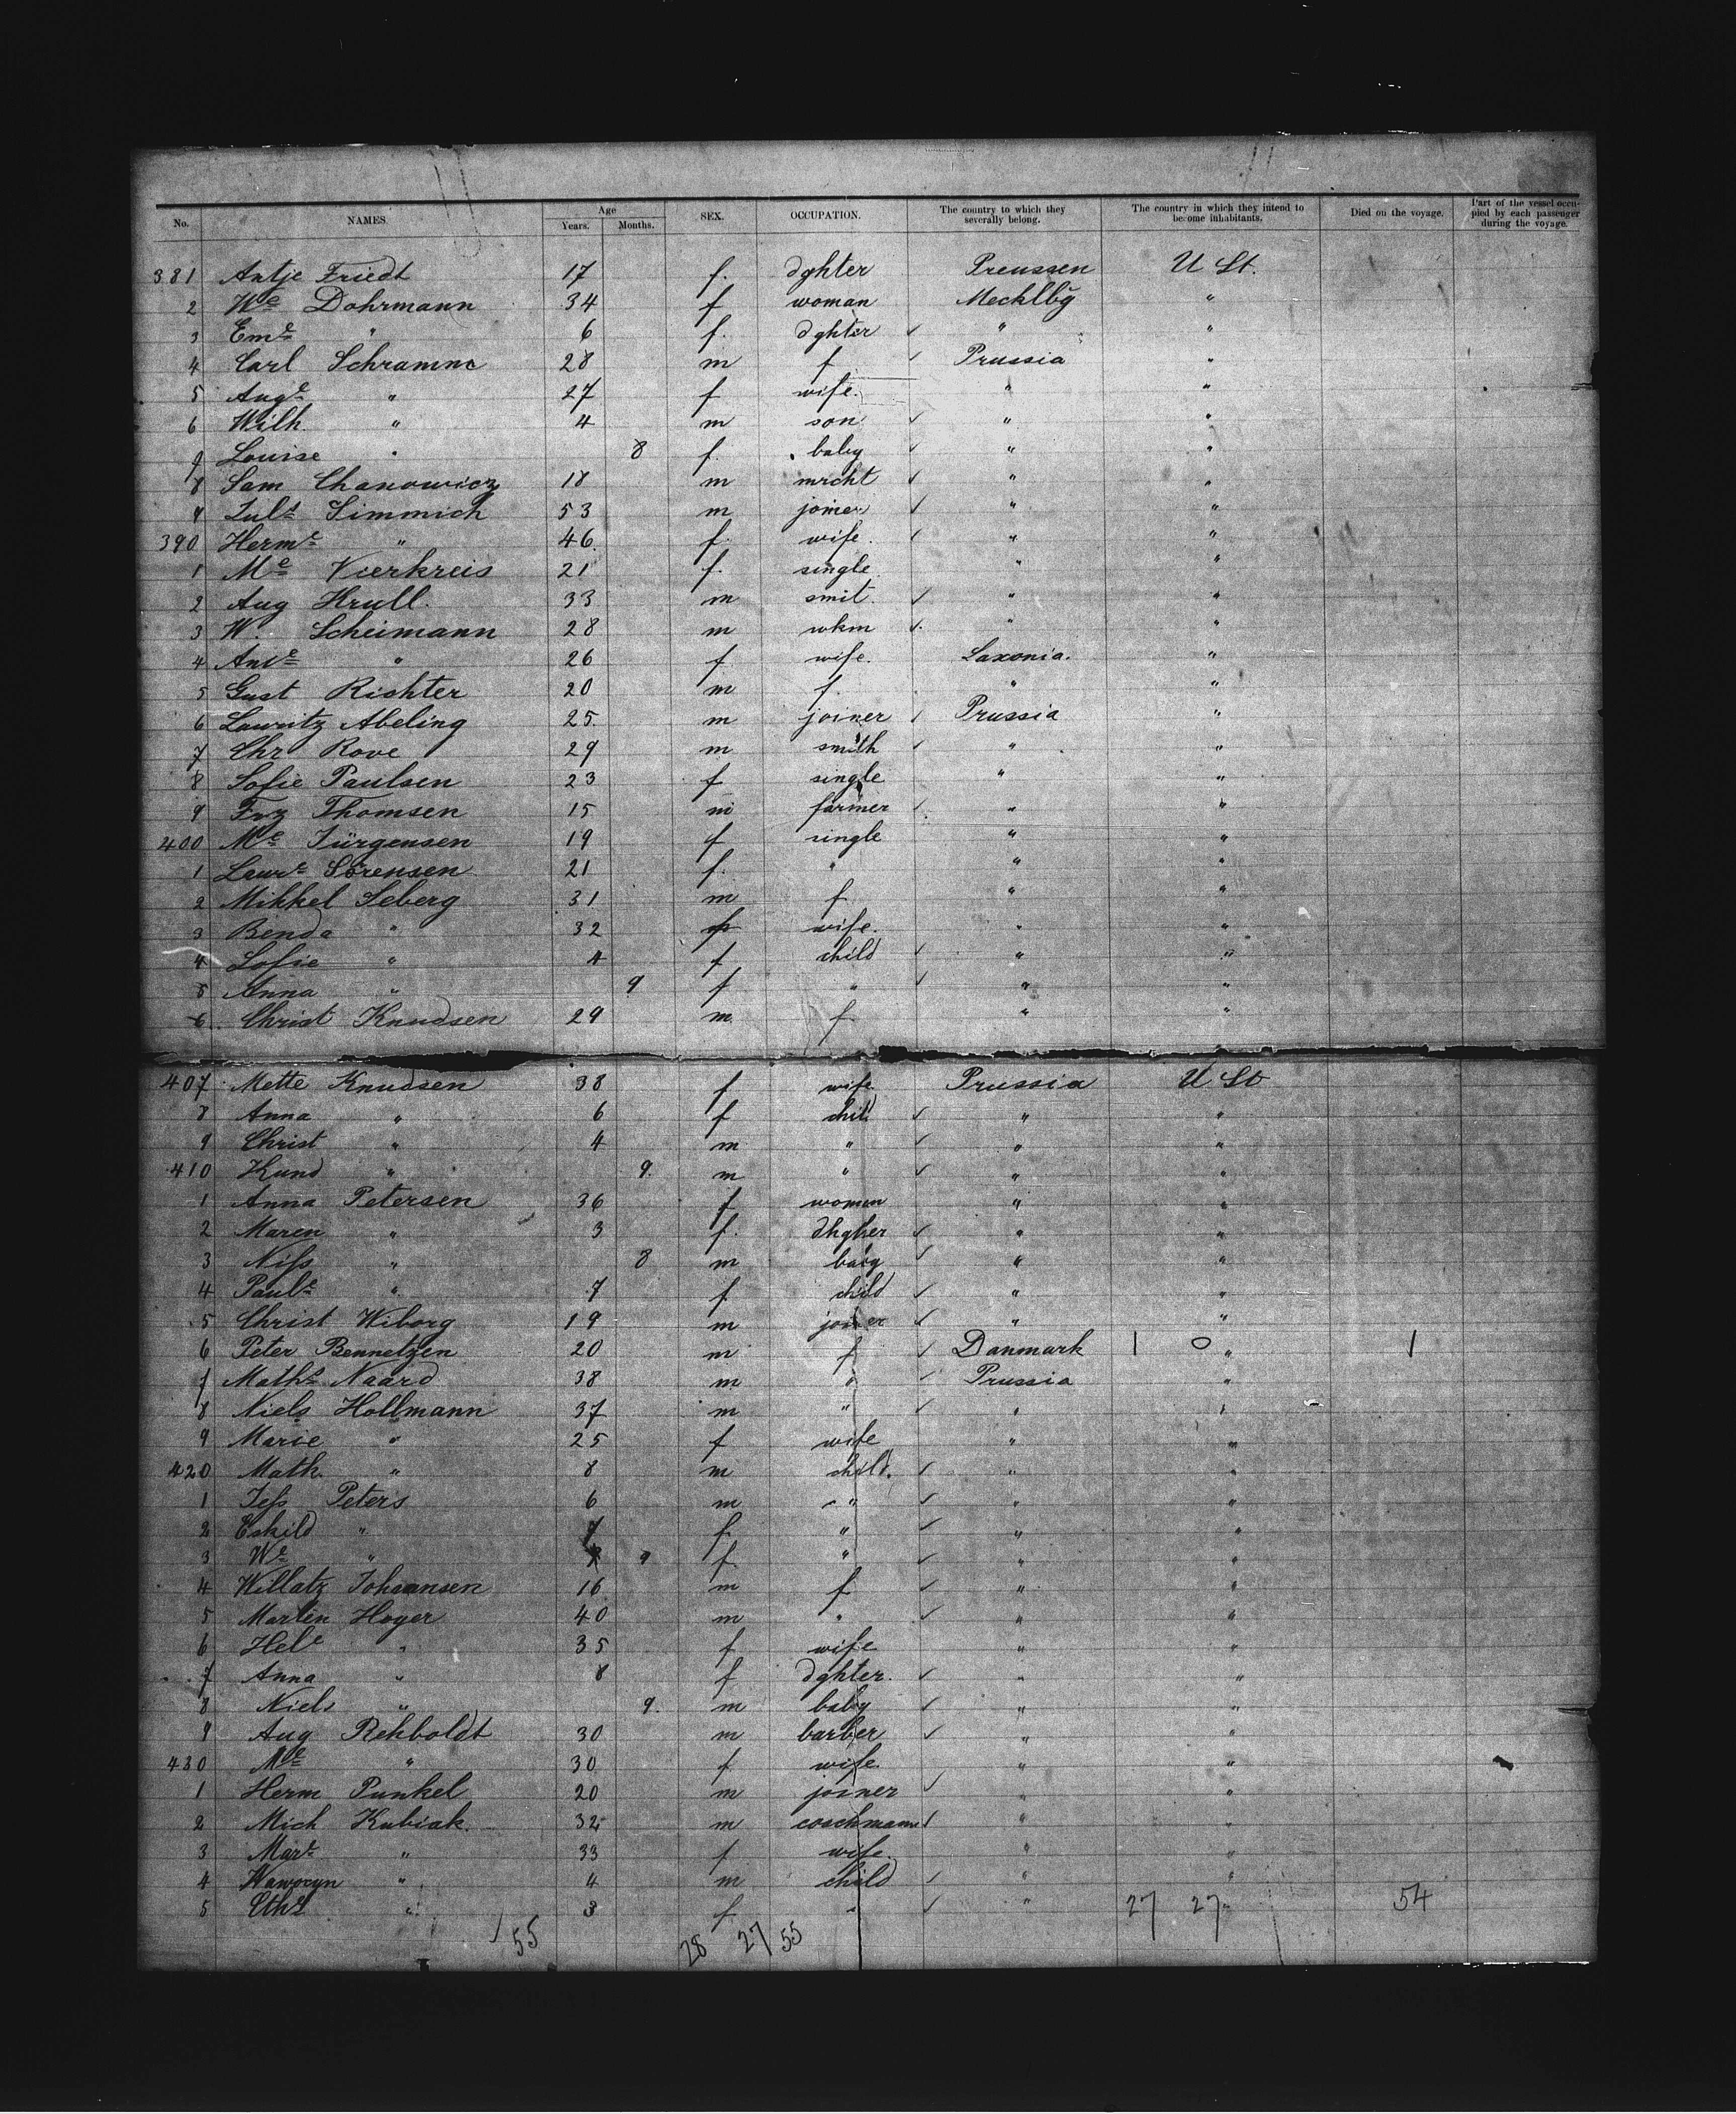 No. NAMES. Age Years. Months. SEX. OCCUPATION. The country to which they severally belong. The country in which they intend to become inhabitants. Died on the voyage. Part of the vessel occupied by each passenger during the voyage.
381 Antje Friedt 17 f. dghter Preussen U St.
2 We Dohrmann 34 f woman Mecklbg "
3 Eme " 6 f. dghter ✓ " "
4 Carl Schramm 28 m f ✓ Prussia "
5 Auge " 27 f wife. " "
6 Wilh. " 4 m son ✓ " "
7 Louise " 8 f. baby ✓ " "
8 Sam Chanowicz 18 m mrcht ✓ " "
9 Juls Simmich 53 m joiner ✓ " "
390 Herme " 46 f. wife. ✓ " "
1 Me Vierkreis 21 f. single " "
2 Aug Krull. 33 m smit. ✓ " "
3 W. Scheimann 28 m wkm ✓ " "
4 Ane " 26 f wife. Saxonia. "
5 Gust Richter 20 m f. " "
6 Lauritz Abeling 25 m joiner ✓ Prussia "
7 Chr Rove 29 m smith ✓ " "
8 Sofie Paulsen 23 f single " "
9 Frz Thomsen 15 m farmer ✓ " "
400 Me Jürgensen 19 f single " "
1 Laure Sörensen 21 f. " " "
2 Mikkel Seberg 31 m f " "
3 Benda " 32 f wife. " "
4 Sofie " 4 f child ✓ " "
5 Anna " 9 f " ✓ " "
6 Christ Knudsen 29 m. f " "
407 Mette Knudsen 38 f wife. Prussia U St
8 Anna " 6 f child ✓ " "
9 Christ " 4 m " ✓ " "
410 Kund " 9. m " ✓ " "
1 Anna Petersen 36 f woman " "
2 Maren " 3 f. dhgher ✓ " "
3 Niss " 8 m baby ✓ " "
4 Paule " 7 f child ✓ " "
5 Christ Wiborg 19 m joiner ✓ " "
6 Peter Bennetzen 20 m f ✓ Danmark 1 0 " 1
7 Maths Naard 38 m " ✓ Prussia "
8 Niels Hollmann 37 m " ✓ " "
9 Marie " 25 f wife " "
420 Math. " 8 m child. ✓ " "
1 Jess Peters 6 m " ✓ " "
2 Eskild " f " ✓ " "
3 We " 9 f " ✓ " "
4 Willatz Johannsen 16 m f ✓ " "
5 Martin Hoyer 40 m " ✓ " "
6 Hele " 35 f wife " "
7 Anna " 8 f dghter. ✓ " "
8 Niels " 9. m baby ✓ " "
9 Aug Rehboldt 30 m barber ✓ " "
430 Me " 30 f wife. " "
1 Herm Punkel 20 m joiner ✓ " "
2 Mich Kubiak. 32 m coachmann ✓ " "
3 Mare " 33 f wife. " "
4 Wawrzyn " 4 m child ✓ " "
5 Cthe " 3 f " ✓ " 27 27 " 54
55 28 27/55